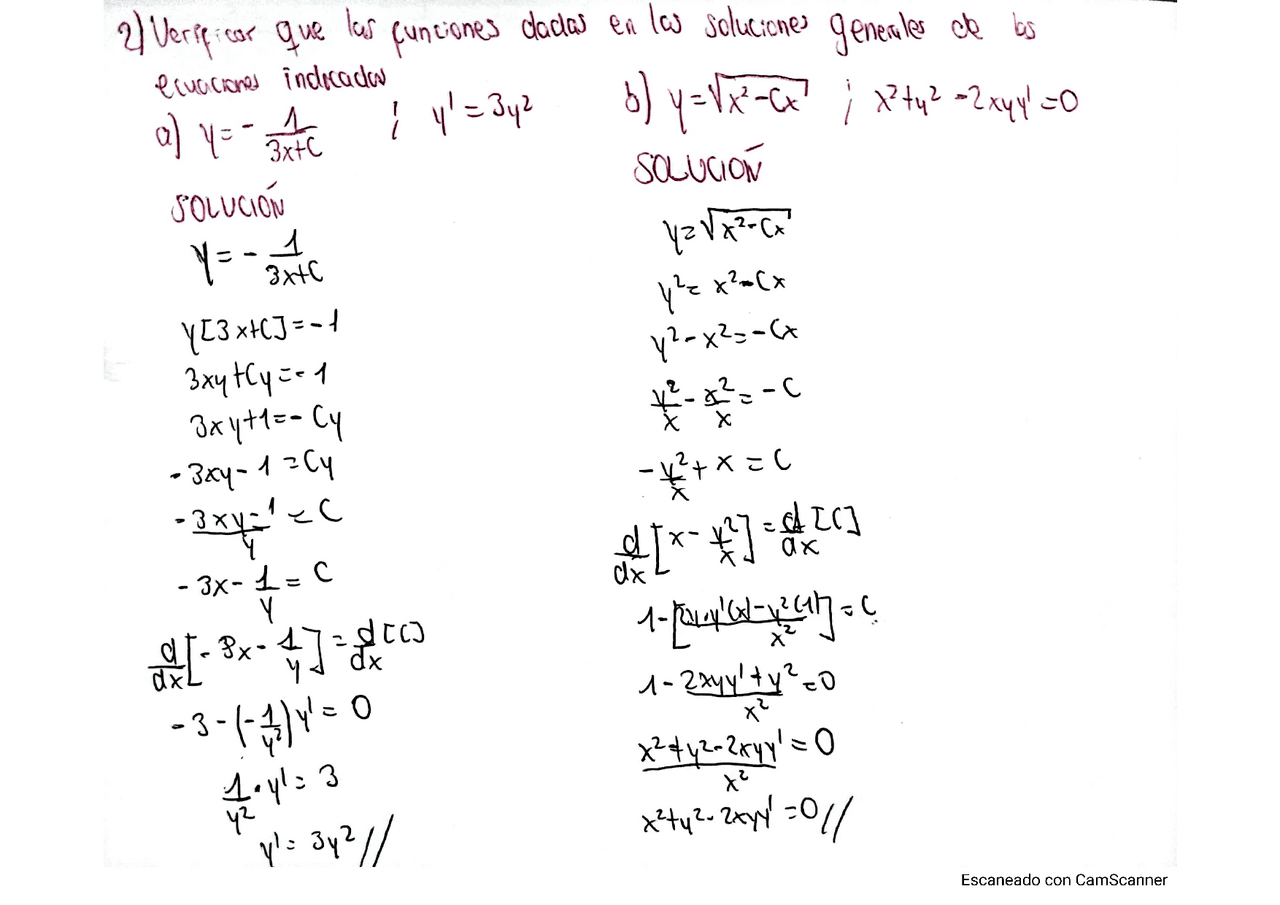 2) Verificar que las funciones dadas en las soluciones generales de las
ecuaciones indicadas
a) y = - 1/(3x+C) ; y' = 3y²
SOLUCIÓN
y = - 1/(3x+C)
y[3x+C] = -1
3xy+Cy = -1
3xy+1 = -Cy
-3xy-1 = Cy
(-3xy-1)/y = C
-3x - 1/y = C
d/dx[-3x - 1/y] = d/dx[C]
-3-(-1/y²)y' = 0
1/y² · y' = 3
y' = 3y² //
b) y = √(x²-Cx) ; x²+y²-2xyy' = 0
SOLUCIÓN
y = √(x²-Cx)
y² = x²-Cx
y²-x² = -Cx
y²/x - x²/x = -C
-y²/x + x = C
d/dx[x - y²/x] = d/dx[C]
1-[(2y·y'(x)-y²(1))/x²] = C
1 - (2xyy'+y²)/x² = 0
(x²+y²-2xyy')/x² = 0
x²+y²-2xyy' = 0 //
Escaneado con CamScanner